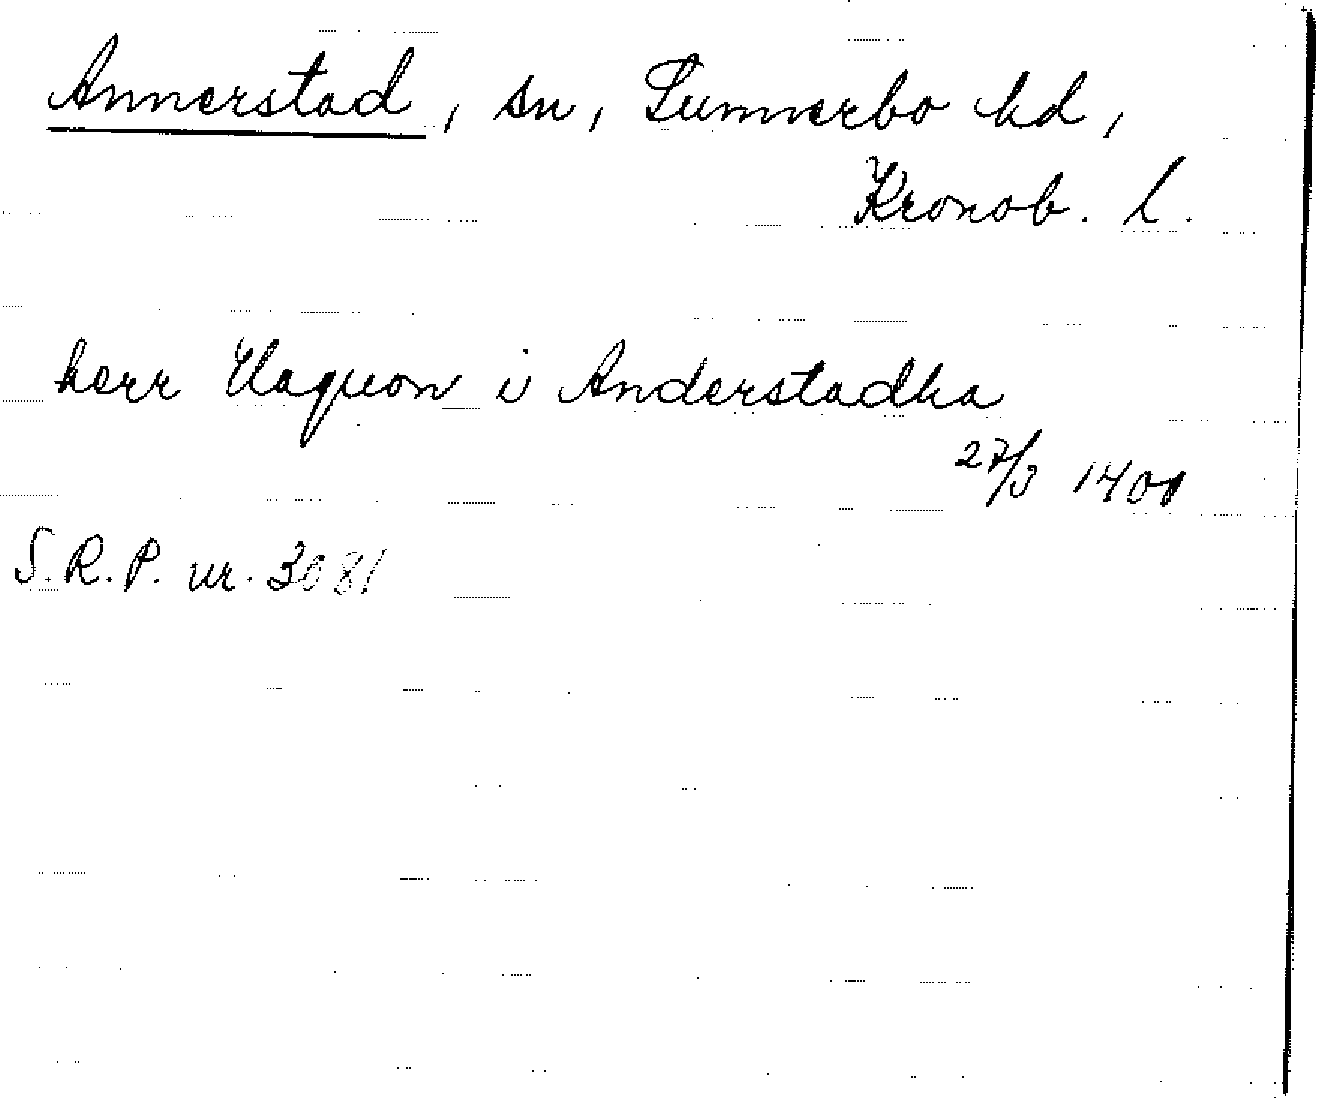 Annerstad, sn, Sunnerbo hd,
Kronob. l.
herr Haquon i Anderstadha
27/3 1401
S.R.P. nr. 3081